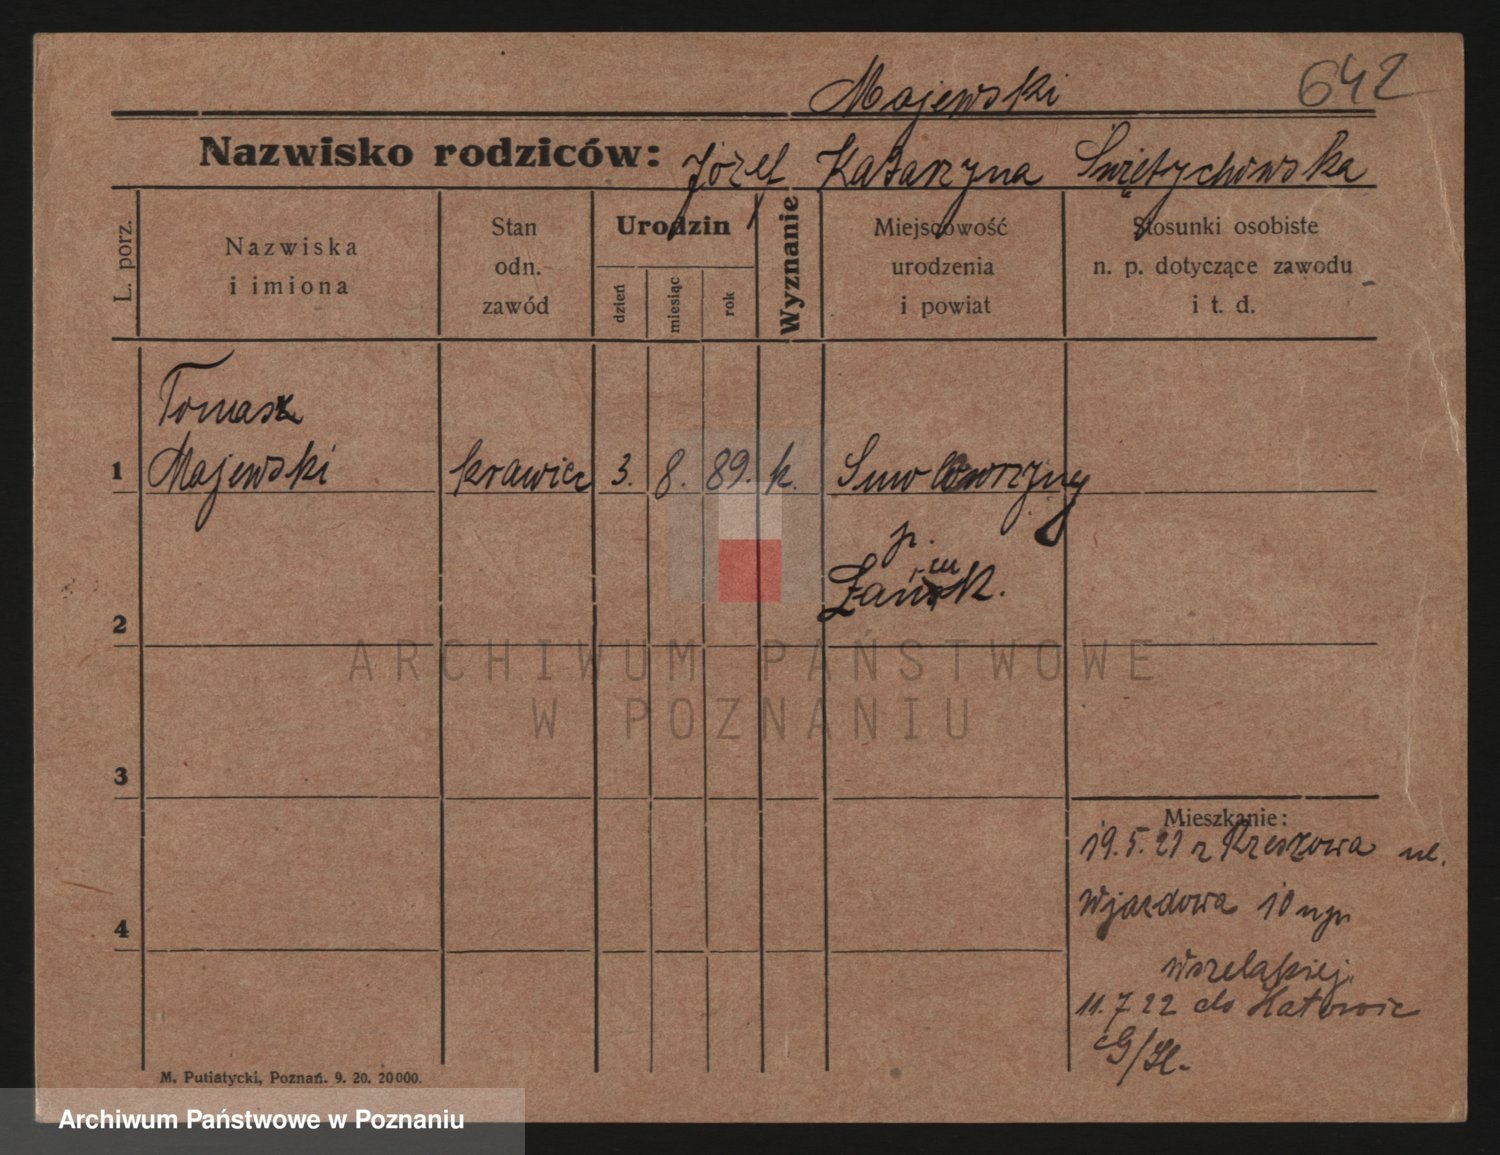 Majewski
642
Nazwisko rodziców: Józef Katarzyna Świętychowska
L. porz.
Nazwiska
i imiona
Stan
odn.
zawód
Urodzin
dzień
miesiąc
rok
Wyznanie
Miejscowość
urodzenia
i powiat
Stosunki osobiste
n. p. dotyczące zawodu
i t. d.
Tomasz
1 Majewski krawiec 3. 8. 89. k.
p.
2
3
4
Mieszkanie:
19.5.21 z Rzeszowa ul.
Wjazdowa 10
11.7.22 do Katowic
G/Sl.
M. Putiatycki, Poznań. 9. 20. 20000.
ARCHIWUM PAŃSTWOWE
W POZNANIU
Archiwum Państwowe w Poznaniu